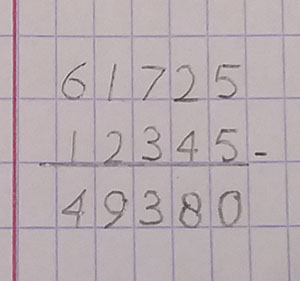 61725
12345-
49380